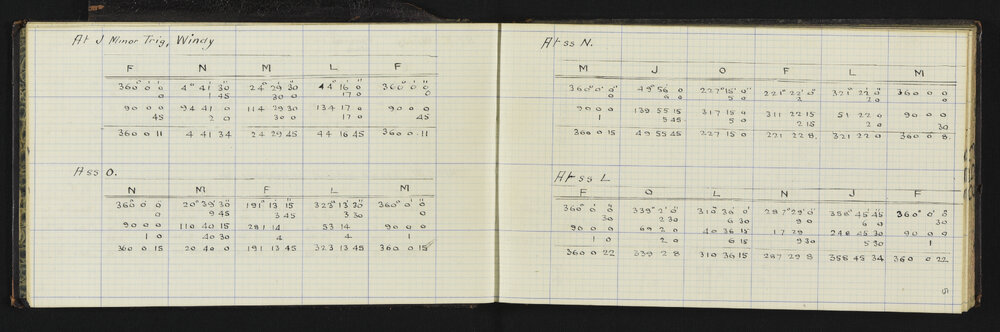 At J Minor Trig, Windy
F N M L F
360° 0' 0" 4° 41' 30" 24° 29' 30" 44° 16' 0" 360° 0' 0"
0 1 45 30 0 17 0 0
90 0 0 94 41 0 114 29 30 134 17 0 90 0 0
45 2 0 30 0 17 0 45
360 0 11 4 41 34 24 29 45 44 16 45 360 0 11
A ss O.
N M F L M
360° 0' 0" 20° 39' 30" 191° 13' 15" 323° 13' 30" 360° 0' 0"
0 9 45 3 45 3 30 0
90 0 0 110 40 15 281 14 53 14 90 0 0
1 0 40 30 4 4 1
360 0 15 20 40 0 191 13 45 323 13 45 360 0 15
At ss N.
M J O F L M
360° 0' 0" 49° 56' 0" 227° 15' 0" 221° 22' 0" 321° 22' 0" 360 0 0
0 6 0 5 0 2 2 0 0
90 0 0 139 55 15 317 15 0 311 22 15 51 22 0 90 0 0
1 5 45 5 0 2 15 2 0 30
360 0 15 49 55 45 227 15 0 221 22 8 321 22 0 360 0 8
At ss L
F O L N J F
360° 0' 0" 339° 2' 0" 310° 36' 0" 287° 29' 0" 358° 45' 45" 360° 0' 0"
30 2 30 6 30 9 0 6 0 30
90 0 0 69 2 0 40 36 15 17 29 248 45 30 90 0 0
1 0 2 0 6 15 9 30 5 30 1
360 0 22 339 2 8 310 36 15 287 29 8 358 45 34 360 0 22